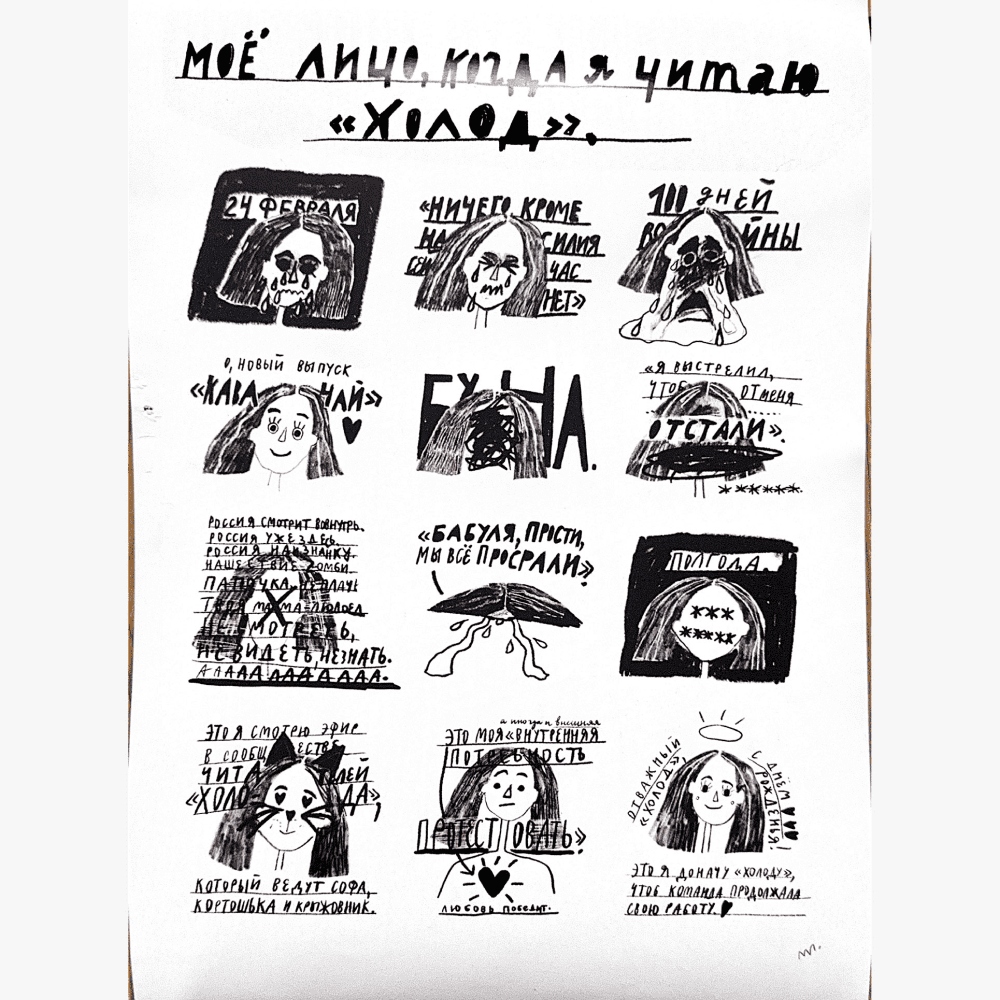 МОЁ ЛИЦО, КОГДА Я ЧИТАЮ
«ХОЛОД».
24 ФЕВРАЛЯ
«НИЧЕГО КРОМЕ
НА СИЛИЯ
СЕЙ ЧАС
НЕТ»
100 ДНЕЙ
ВО ЙНЫ
О, НОВЫЙ ВЫПУСК
«КАВА НАЙ»
БУ НА.
«Я ВЫСТРЕЛИЛ,
ЧТОБ ОТ МЕНЯ
ОТСТАЛИ».
******.
РОССИЯ СМОТРИТ ВОВНУТРЬ.
РОССИЯ УЖЕ ЗДЕСЬ.
РОССИЯ НАИЗНАНКУ.
НАШЕСТВИЕ ЗОМБИ.
ПАПОЧКА, НЕ ПЛАЧЬ
ТВОЯ МАМА-ЛЮДОЕД
НЕ СМОТРЕТЬ,
НЕ ВИДЕТЬ, НЕ ЗНАТЬ.
ААААААААААААА.
«БАБУЛЯ, ПРОСТИ,
МЫ ВСЁ ПРОСРАЛИ»
ПОЛГОДА.
***
*****
ЭТО Я СМОТРЮ ЭФИР
В СООБЩЕСТВЕ
ЧИТА ЛЕЙ
«ХОЛО ДА»,
КОТОРЫЙ ВЕДУТ СОФА,
КОРТОШЬКА И КРЫЖОВНИК.
а иногда и внешняя
ЭТО МОЯ «ВНУТРЕННЯЯ
ПОТРЕБНОСТЬ
ПРОТЕСТ ОВАТЬ»
ЛЮБОВЬ ПОБЕДИТ.
ОТВАЖНЫЙ
«ХОЛОД»,
С ДНЁМ
РОЖДЕНЬЯ!
ЭТО Я ДОНАЧУ «ХОЛОДУ»,
ЧТОБ КОМАНДА ПРОДОЛЖАЛА
СВОЮ РАБОТУ.